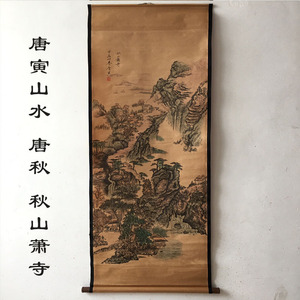 唐寅山水 唐秋 秋山萧寺